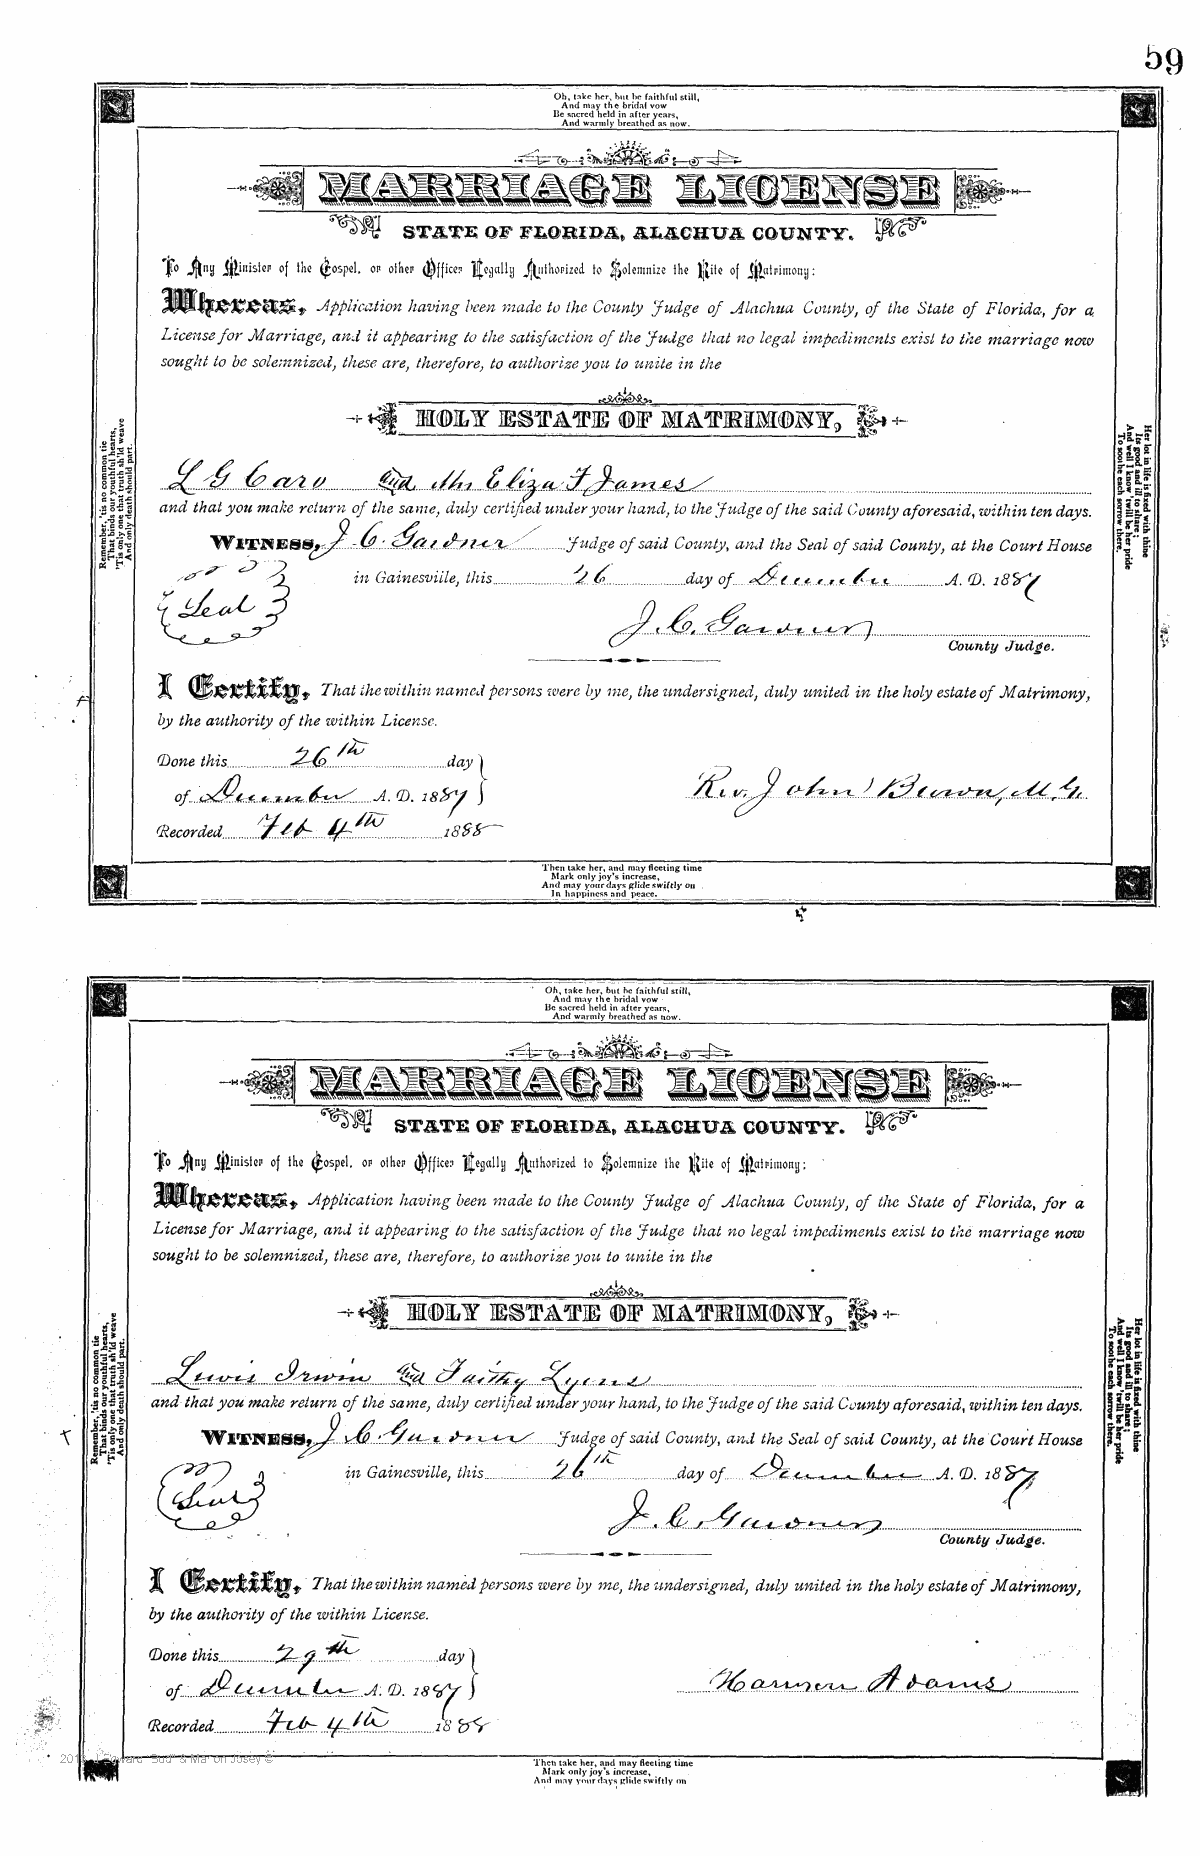 59
Oh, take her, but be faithful still,
And may the bridal vow
Be sacred held in after years,
And warmly breathed as now.
MARRIAGE LICENSE
STATE OF FLORIDA, ALACHUA COUNTY.
To Any Minister of the Gospel, or other Officer Legally Authorized to Solemnize the Rite of Matrimony:
Whereas, Application having been made to the County Judge of Alachua County, of the State of Florida, for a
License for Marriage, and it appearing to the satisfaction of the Judge that no legal impediments exist to the marriage now
sought to be solemnized, these are, therefore, to authorize you to unite in the
HOLY ESTATE OF MATRIMONY,
L G Caro and Mrs Eliza F James
and that you make return of the same, duly certified under your hand, to the Judge of the said County aforesaid, within ten days.
WITNESS, J. C. Gardner Judge of said County, and the Seal of said County, at the Court House
Seal
in Gainesville, this 26 day of December A. D. 1887
J. C. Gardner
County Judge.
I Certify, That the within named persons were by me, the undersigned, duly united in the holy estate of Matrimony,
by the authority of the within License.
Done this 26th day
of December A. D. 1887
Rev. John Brown, M. G.
Recorded Feb 4th 1888
Remember, 'tis no common tie
That binds our youthful hearts,
'Tis only one that truth sh'ld weave
And only death should part.
Her lot in life is fixed with thine
Its good and ill to share;
And well I know 'twill be her pride
To soothe each sorrow there.
Then take her, and may fleeting time
Mark only joy's increase,
And may your days glide swiftly on
In happiness and peace.
Oh, take her, but be faithful still,
And may the bridal vow
Be sacred held in after years,
And warmly breathed as now.
MARRIAGE LICENSE
STATE OF FLORIDA, ALACHUA COUNTY.
To Any Minister of the Gospel, or other Officer Legally Authorized to Solemnize the Rite of Matrimony:
Whereas, Application having been made to the County Judge of Alachua County, of the State of Florida, for a
License for Marriage, and it appearing to the satisfaction of the Judge that no legal impediments exist to the marriage now
sought to be solemnized, these are, therefore, to authorize you to unite in the
HOLY ESTATE OF MATRIMONY,
Lewis Irwin and Faithy Lyons
and that you make return of the same, duly certified under your hand, to the Judge of the said County aforesaid, within ten days.
WITNESS, J. C. Gardner Judge of said County, and the Seal of said County, at the Court House
Seal
in Gainesville, this 26th day of December A. D. 1887
J. C. Gardner
County Judge.
I Certify, That the within named persons were by me, the undersigned, duly united in the holy estate of Matrimony,
by the authority of the within License.
Done this 29th day
of December A. D. 1887
Harrison Adams
Recorded Feb 4th 1888
Remember, 'tis no common tie
That binds our youthful hearts,
'Tis only one that truth sh'ld weave
And only death should part.
Her lot in life is fixed with thine
Its good and ill to share;
And well I know 'twill be her pride
To soothe each sorrow there.
Then take her, and may fleeting time
Mark only joy's increase,
And may your days glide swiftly on